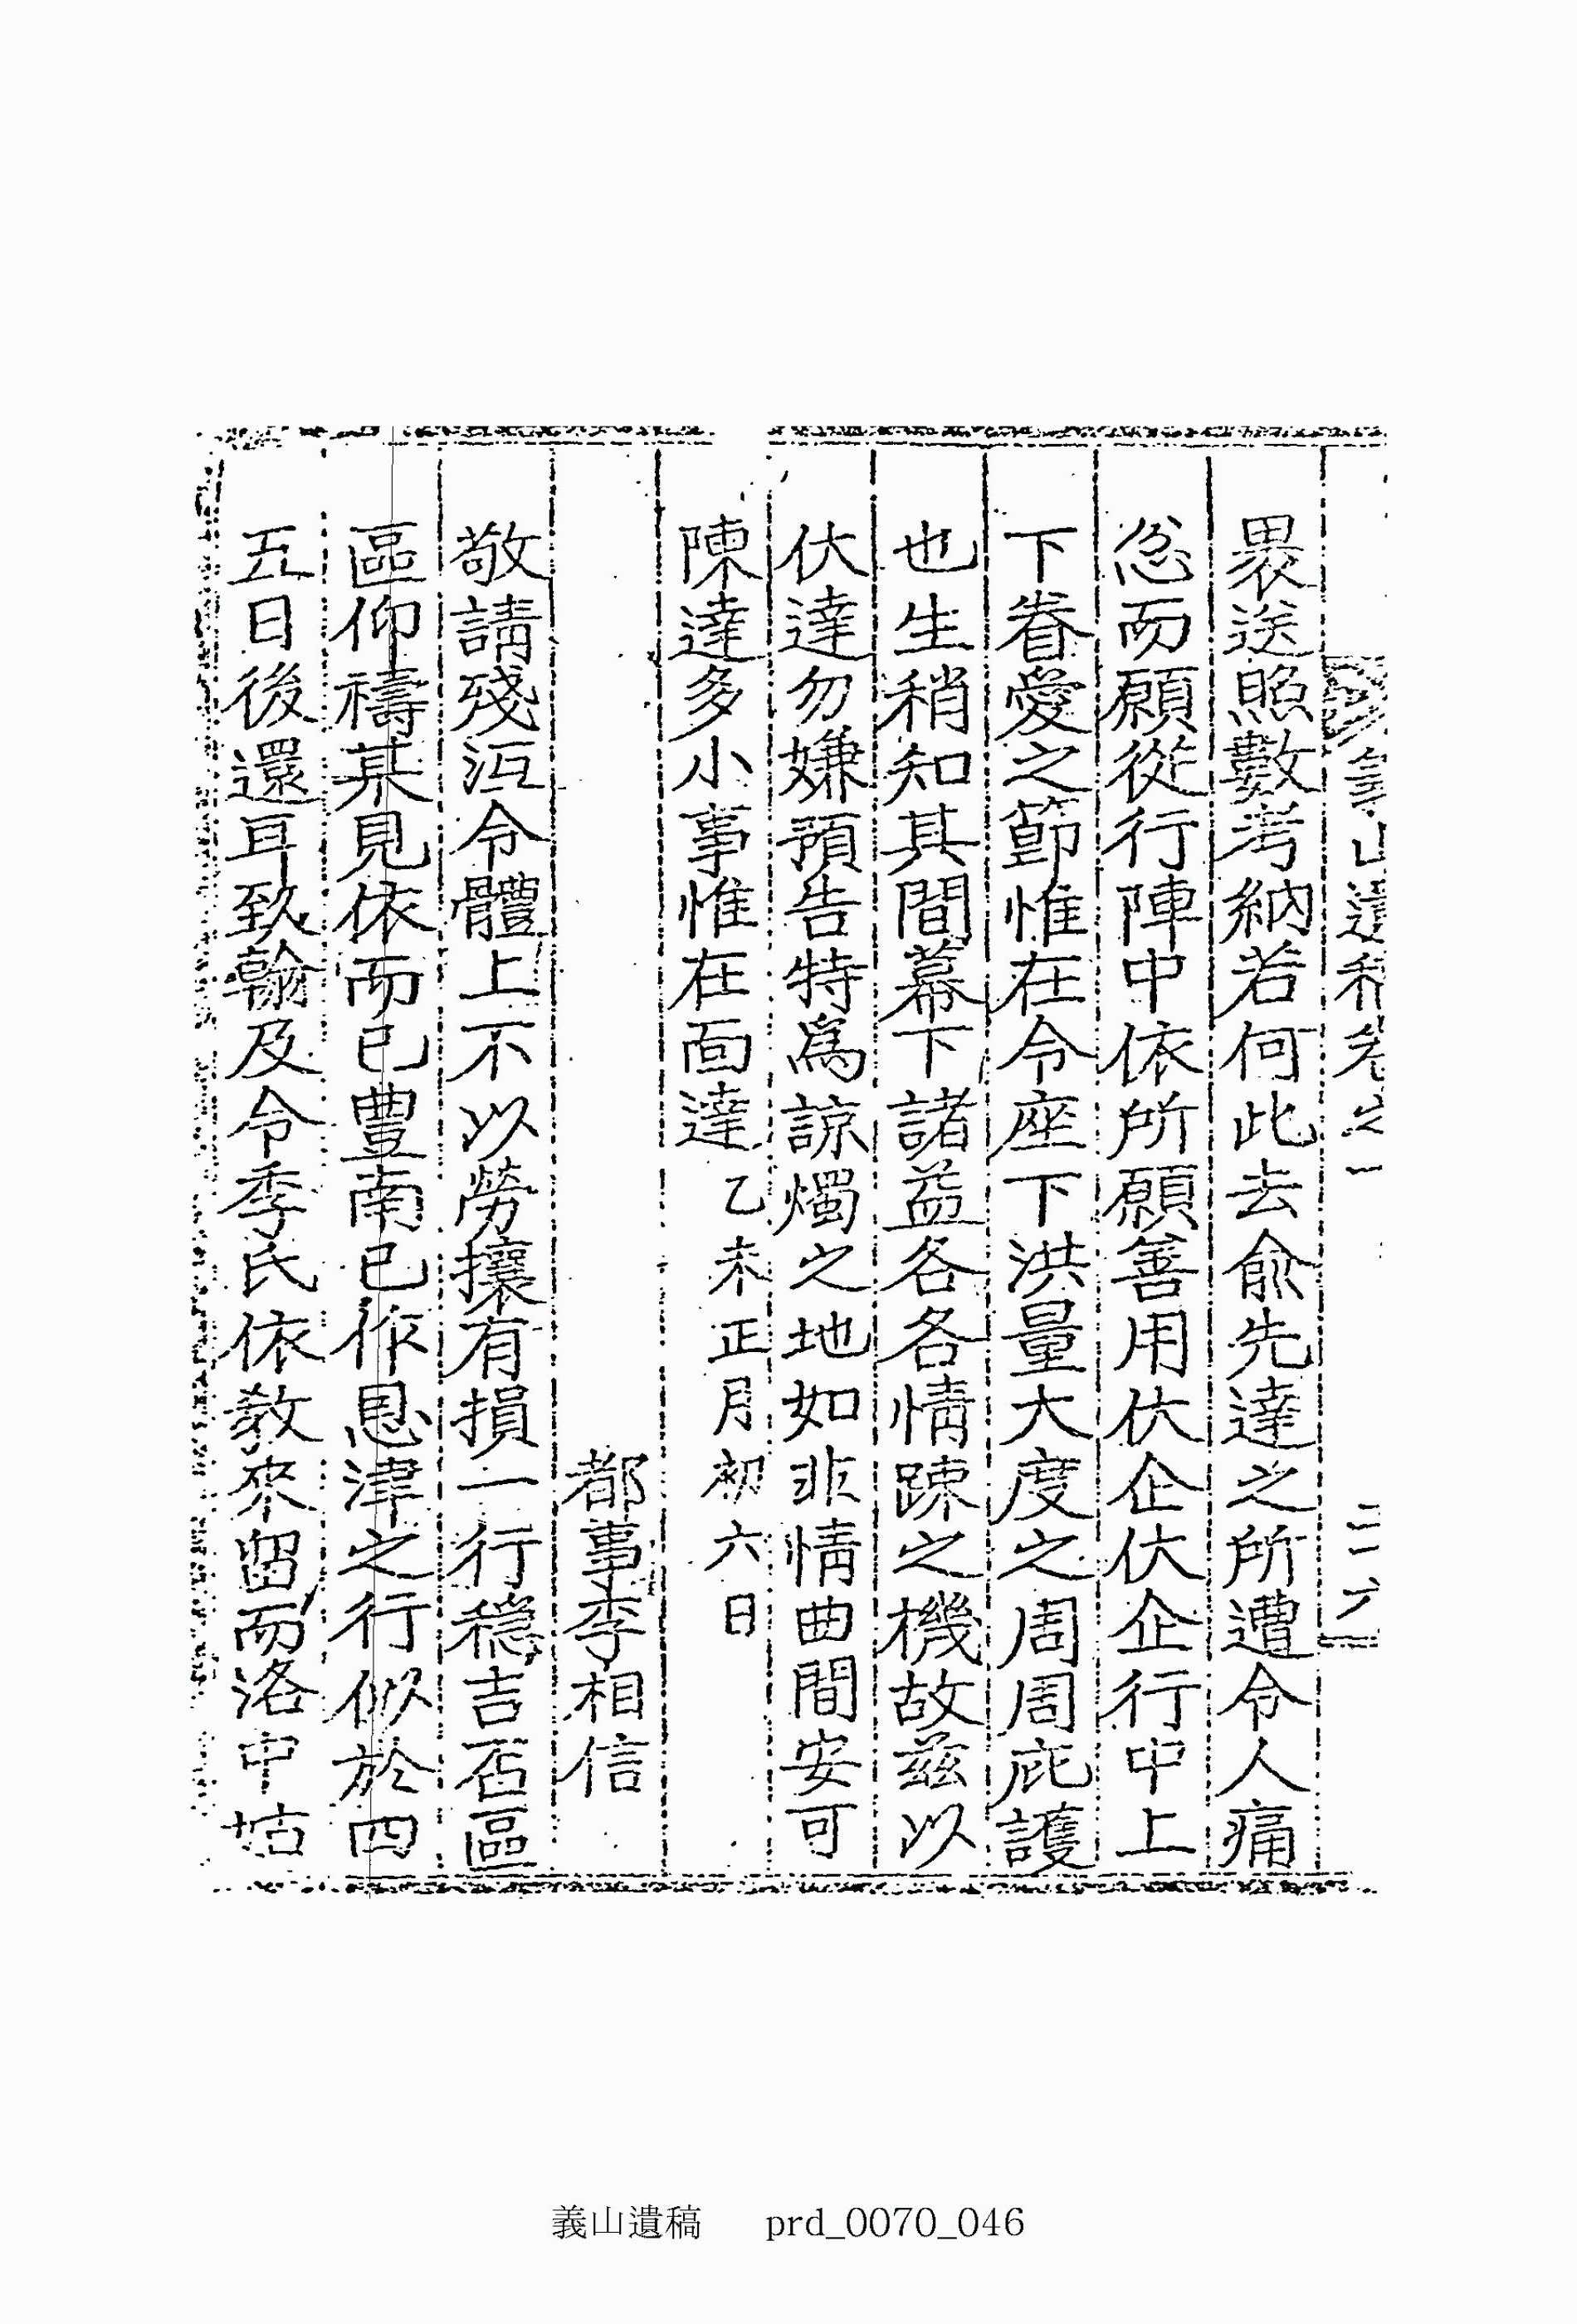 義山遺稿卷之一 二六
畧送照數考納若何此去兪先達之所遭令人痛
忿而願從行陣中依所願善用伏企伏企行中上
下眷愛之節惟在令座下洪量大度之周周庇護
也生稍知其間幕下諸益各各情踈之機故玆以
伏達勿嫌預告特爲諒燭之地如非情曲間安可
陳達多小事惟在面達 乙未正月初六日
都事李相信
敬請殘沍令體上不以勞攘有損一行穩吉否區
區仰禱某見依而已豊南已作恩津之行似於四
五日後還耳致翰及令季氏依敎來留而洛中姑
義山遺稿 prd_0070_046